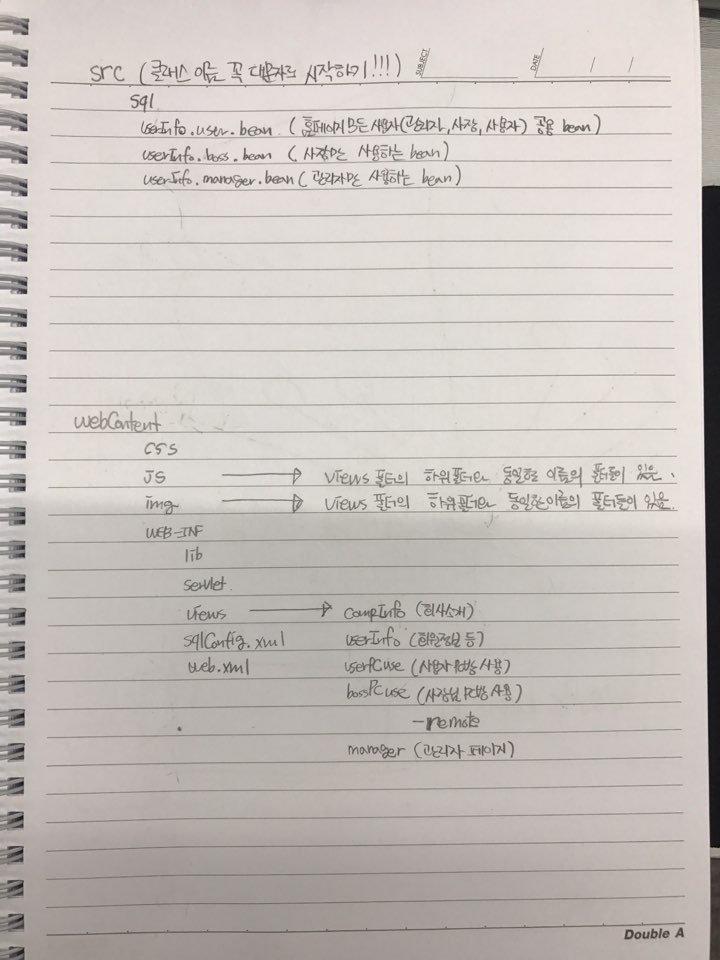 SUBJECT
DATE / /
src (클래스 이름 꼭 대문자로 시작하기!!!)
sql
userInfo.user.bean (홈페이지 모든 사용자(관리자, 사장, 사용자) 공용 bean)
userInfo.boss.bean (사장만 사용하는 bean)
userInfo.manager.bean (관리자만 사용하는 bean)
webContent
CSS
JS → views 폴더의 하위폴더와 동일한 이름의 폴더들이 있음.
img → views 폴더의 하위폴더와 동일한 이름의 폴더들이 있음.
WEB-INF
lib
servlet
views → compInfo (회사소개)
sqlConfig.xml userInfo (회원정보 등)
web.xml userPCuse (사용자 PC방 사용)
bossPCuse (사장님 PC방 사용)
-remote
manager (관리자 페이지)
Double A